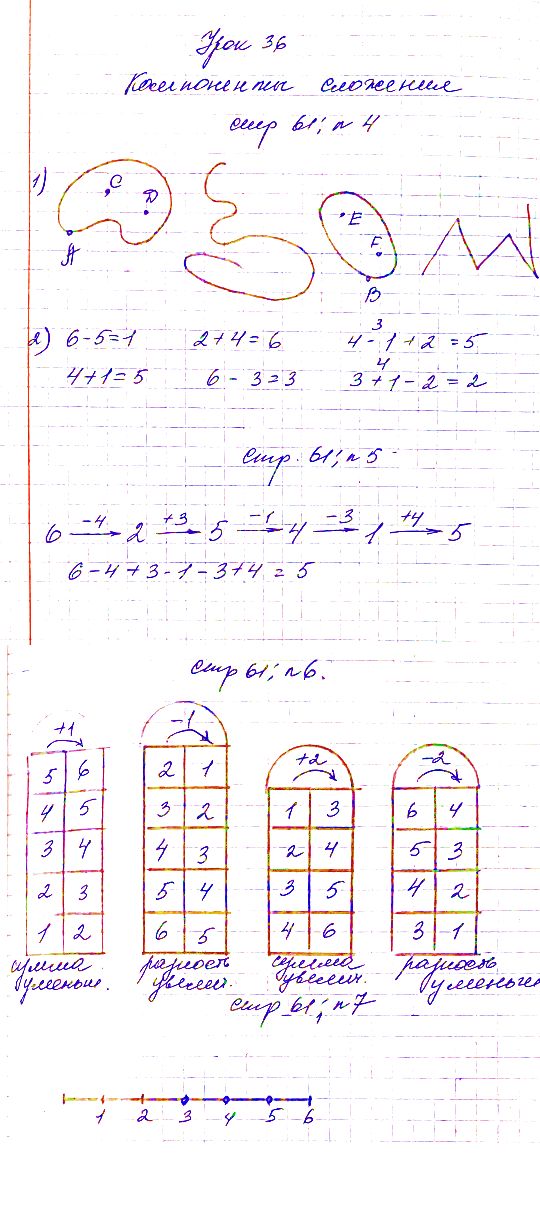 Урок 36
Компоненты сложения
стр 61; n 4
1)
C
D
A
E
F
B
2) 6-5=1 2+4=6 4-1+2=5
3
4+1=5 6-3=3 3+1-2=2
4
стр. 61; n 5
6 -4 2 +3 5 -1 4 -3 1 +4 5
6-4+3-1-3+4=5
стр 61; n 6.
+1 -1 +2 -2
5 6 2 1 1 3 6 4
4 5 3 2 2 4 5 3
3 4 4 3 3 5 4 2
2 3 5 4 4 6 3 1
1 2 6 5
сумма разность сумма разность
уменьш. увелич. увелич. уменьше
стр 61; n 7
1 2 3 4 5 6